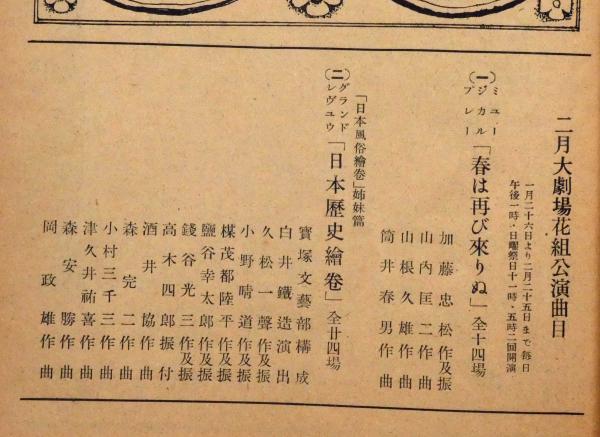 二月大劇場花組公演曲目
一月二十六日より二月二十五日まで毎日
午後一時・日曜祭日十一時・五時二回開演
(一)ミュージカルプレー「春は再び來りぬ」全十四場
加藤忠松作及振
山内匡二作曲
山根久雄作曲
筒井春男作曲
「日本風俗繪卷」姉妹篇
(二)グランドレヴュウ「日本歷史繪卷」全廿四場
寶塚文藝部構成
白井鐵造演出
久松一聲作及振
小野晴道作及振
楳茂都陸平作及振
鹽谷幸太郎作及振
錢谷光三作及振
高木四郎振付
酒井協作曲
森完二作曲
小村三千三作曲
津久井祐喜作曲
森安勝作曲
岡政雄作曲